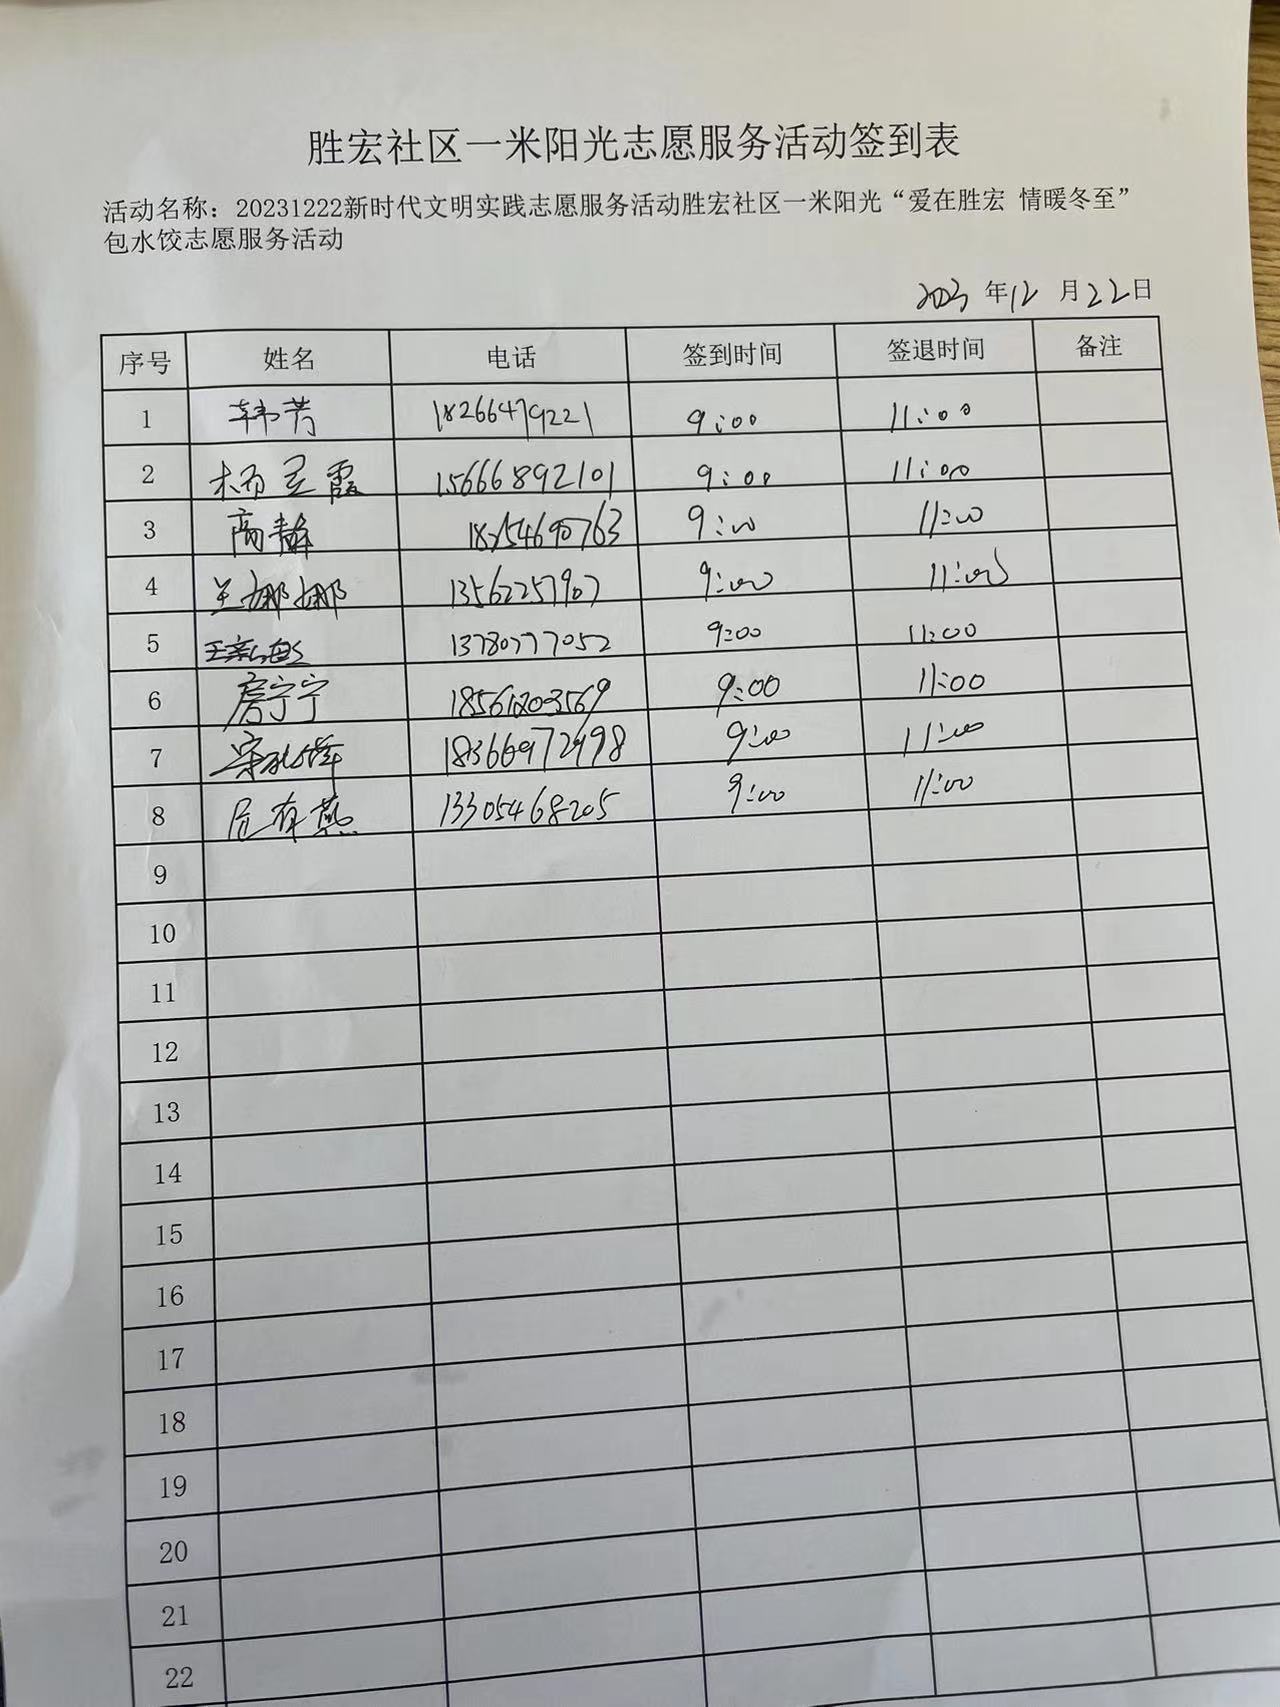 胜宏社区一米阳光志愿服务活动签到表
活动名称：20231222新时代文明实践志愿服务活动胜宏社区一米阳光“爱在胜宏 情暖冬至”
包水饺志愿服务活动
2023 年12 月22日
序号 姓名 电话 签到时间 签退时间 备注
1 韩芳 18266479221 9:00 11:00
2 杨灵霞 15666892101 9:00 11:00
3 高静 18254690763 9:00 11:00
4 兰娜娜 13562257907 9:00 11:00
5 13780777052 9:00 11:00
6 房宁宁 9:00 11:00
7 18366972998 9:00 11:00
8 有燕 13305468205 9:00 11:00
9
10
11
12
13
14
15
16
17
18
19
20
21
22